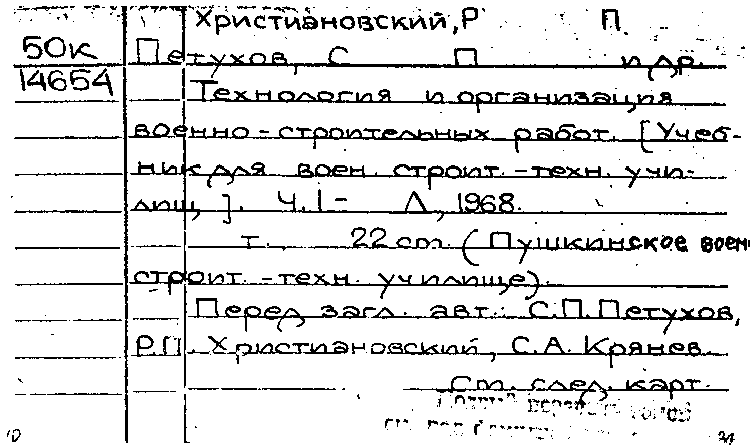 Христиановский, Р П.
50к Петухов, С П и др.
14654 Технология и организация
военно-строительных работ. [Учеб-
ник для воен. строит.-техн. учи-
лищ]. Ч. I- Л, 1968.
т. 22 cm (Пушкинское воен
строит.-техн. училище).
Перед загл. авт.: С.П. Петухов,
Р.П. Христиановский, С.А. Крянев.
См. след. карт.